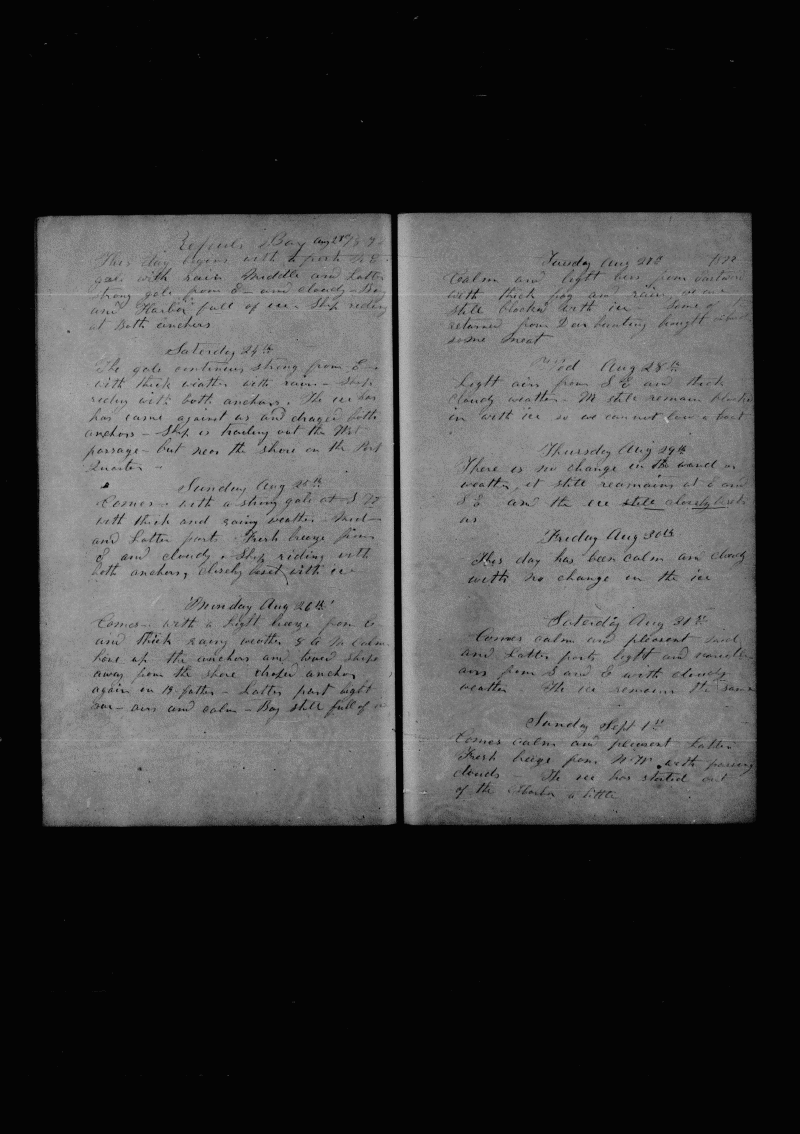 Repuls Bay Aug 23rd 187
This day begins with a fresh N E
gale with rain Middle and Latter
strong gale from E and cloudy - Bay
and Harbor full of ice - Ship riding
at Both anchors
Saterday 24th
The gale continues strong from E -
with thick weather with rain - Ship
riding with both anchors. The ice has
has came against us and draged both
anchors - Ship is trailing out the West
passage - but near the shore on the Port
Quarter -
Sunday Aug 25th
Comes - with a strong gale at S
with thick and rainy weather - Mid -
and Latter part Fresh breeze from
E and cloudy. Ship riding with
both anchors, closely beset with ice -
Munday Aug 26th
Comes - with a light breeze from
and thick rainy weather 8 A M calm
hove up the anchors and towed ship
away from the shore droped anchor
again in 13 fathn - Latter part light
airs and calm - Bay still full of
Tuesday Aug 27th
Coalm and light airs from eastward
with thick fog and rain
still blocked with ice - Some of
returned from Deer hunting bought
some meat
Wed Aug 28th
Light airs from S E and thick
cloudy weather - We still remain blocked
in with ice so we can not low a boat
Thursday Aug 29th
There is no change in the wind or
weather, it still reamains at E and
S E and the ice still closely beset
us
Friday Aug 30th
This day has been calm and cloudy
with no change in the ice
Saterday Aug 31st
Comes calm and pleasent Mid
and Latter parts light and
airs from S and E with cloudy
weather The ice remains the same
Sunday Sept 1st
Comes calm and pleasent Latter
Fresh breeze from N W. with passing
clouds - The ice has started out
of the Harbor a little